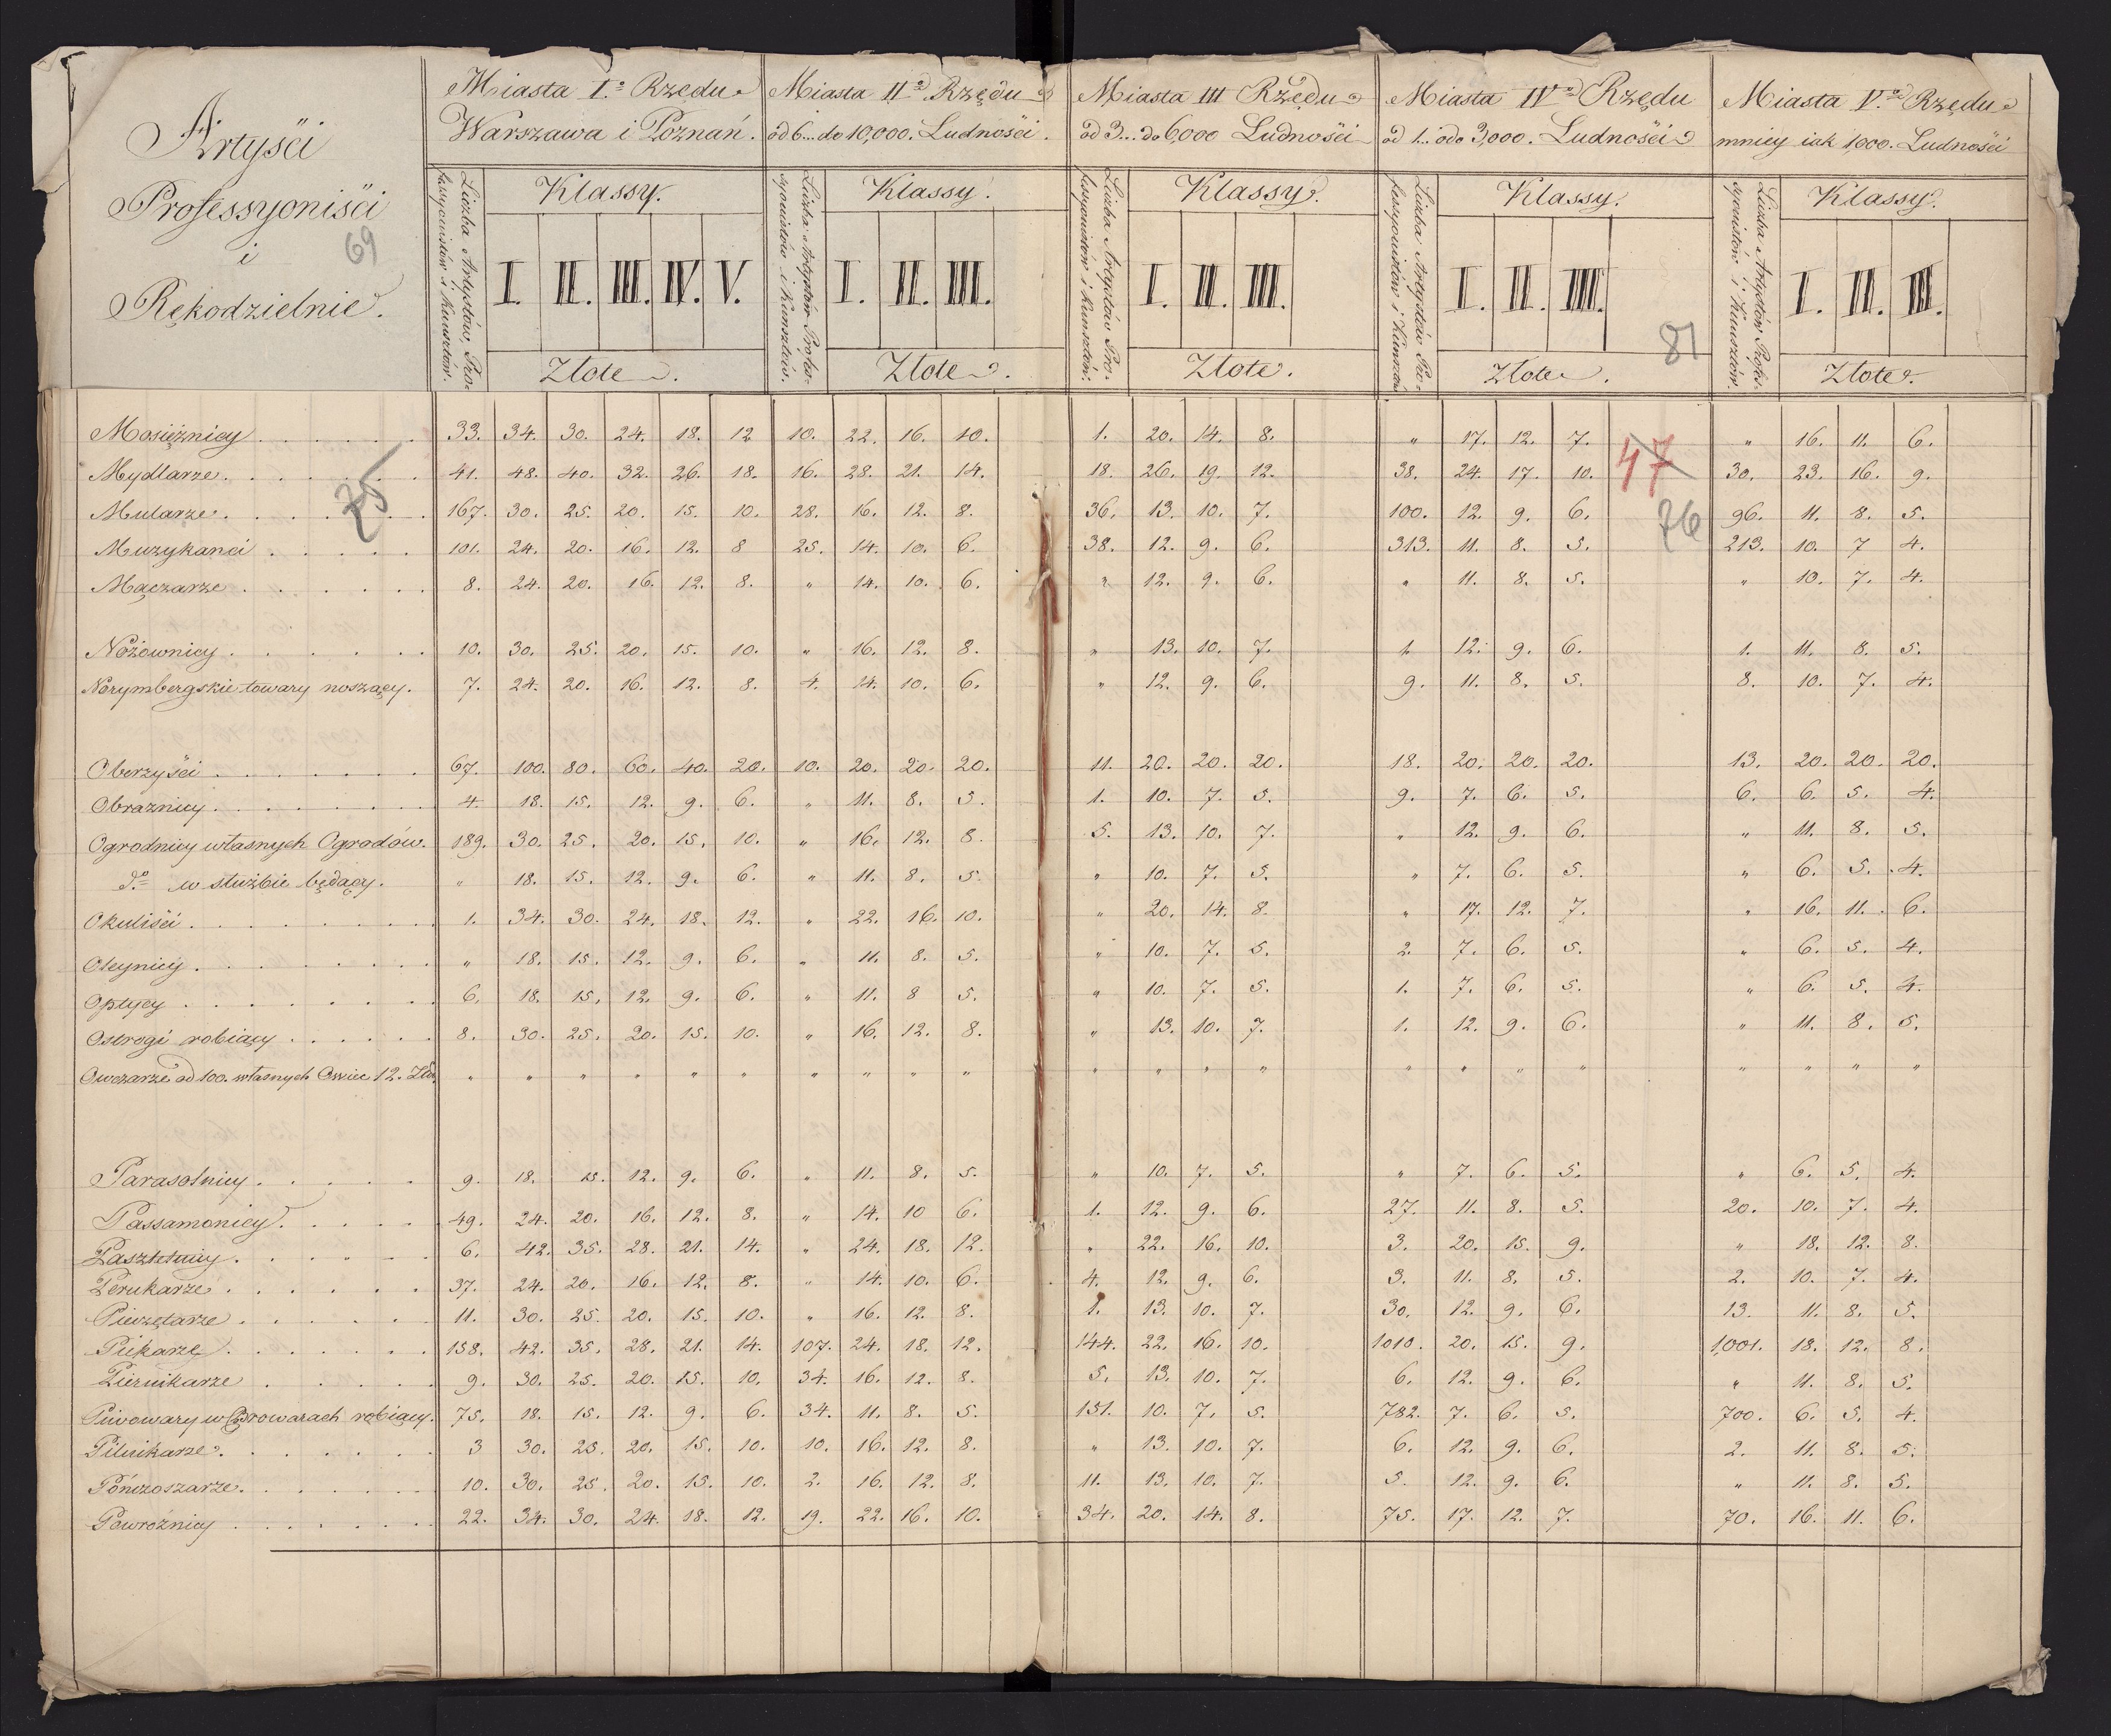 Artyści
Professyoniści
i
Rękodzielnie.
69
Miasta I.º Rzędu
Warszawa i Poznań.
Miasta IIº Rzędu
od 6... do 10,000. Ludności.
Miasta III Rzędu
od 3... do 6,000 Ludności
Miasta IVº Rzędu
od 1... do 3,000. Ludności
Miasta V.º Rzędu
mniey iak 1,000. Ludności
Liczba Artystów, Professyonistów i Kunsztów.
Klassy.
I. II. III. IV. V.
Złote.
Liczba Artystów Professyonistów i Kunsztów.
Klassy.
I. II. III.
Złote.
Liczba Artystów Professyonistów i Kunsztów.
Klassy.
I. II. III.
Złote.
Liczba Artystów Professyonistów i Kunsztów
Klassy.
I. II. III.
Złote.
81
Liczba Artystów Professyonistów i Kunsztów.
Klassy.
I. II. III.
Złote.
Mosiężnicy 33. 34. 30. 24. 18. 12 10. 22. 16. 10. 1. 20. 14. 8. " 17. 12. 7. " 16. 11. 6.
47
Mydlarze 41. 48. 40. 32. 26. 18. 16. 28. 21. 14. 18. 26. 19. 12. 38. 24. 17. 10. 30. 23. 16. 9.
25
Mularze 167. 30. 25. 20. 15. 10. 28. 16. 12. 8. 36. 13. 10. 7. 100. 12. 9. 6. 96. 11. 8. 5.
76
Muzykanci 101. 24. 20. 16. 12. 8 25. 14. 10. 6. 38. 12. 9. 6. 313. 11. 8. 5. 213. 10. 7 4.
Mączarze 8. 24. 20. 16. 12. 8. " 14. 10. 6. " 12. 9. 6. " 11. 8. 5. " 10. 7. 4.
Nożownicy 10. 30. 25. 20. 15. 10. " 16. 12. 8. " 13. 10. 7. 1. 12. 9. 6. 1. 11. 8. 5.
Norymbergskie towary noszący. 7. 24. 20. 16. 12. 8. 4. 14. 10. 6. " 12. 9. 6. 9. 11. 8. 5. 8. 10. 7. 4.
Oberzyści 67. 100. 80. 60. 40. 20. 10. 20. 20. 20. 11. 20. 20. 20. 18. 20. 20. 20. 13. 20. 20. 20.
Obraznicy 4. 18. 15. 12. 9. 6. " 11. 8. 5. 1. 10. 7. 5. 9. 7. 6. 5. 6. 6. 5. 4.
Ogrodnicy własnych Ogrodów. 189. 30. 25. 20. 15. 10. " 16. 12. 8. 5. 13. 10. 7. " 12. 9. 6. " 11. 8. 5.
d.º w służbie będący. " 18. 15. 12. 9. 6. " 11. 8. 5. " 10. 7. 5. " 7. 6. 5. " 6. 5. 4.
Okuliści 1. 34. 30. 24. 18. 12. " 22. 16. 10. " 20. 14. 8. " 17. 12. 7. " 16. 11. 6.
Oleynicy " 18. 15. 12. 9. 6. " 11. 8. 5. " 10. 7. 5. 2. 7. 6. 5. " 6. 5. 4.
Optycy 6. 18. 15. 12. 9. 6. " 11. 8 5. " 10. 7. 5. 1. 7. 6. 5. " 6. 5. 4.
Ostrogi robiący 8. 30. 25. 20. 15. 10. " 16. 12. 8. " 13. 10. 7. 1. 12. 9. 6. " 11. 8. 5.
Owczarze od 100. własnych Owiec 12. Zło. " " " " " " " " " " " " " " " " " " " " " "
Parasolnicy 9. 18. 15. 12. 9. 6. " 11. 8. 5. " 10. 7. 5. " 7. 6. 5. " 6. 5. 4.
Passamonicy 49. 24. 20. 16. 12. 8. " 14. 10 6. 1. 12. 9. 6. 27. 11. 8. 5. 20. 10. 7. 4.
Pasztetnicy 6. 42. 35. 28. 21. 14. " 24. 18. 12. " 22. 16. 10. 3. 20. 15. 9. " 18. 12. 8.
Perukarze 37. 24. 20. 16. 12. 8. " 14. 10. 6. 4. 12. 9. 6. 3. 11. 8. 5. 2. 10. 7. 4.
Pieczętarze 11. 30. 25. 20. 15. 10. " 16. 12. 8. 1. 13. 10. 7. 30. 12. 9. 6. 13. 11. 8. 5.
Piekarze 158. 42. 35. 28. 21. 14. 107. 24. 18. 12. 144. 22. 16. 10. 1010. 20. 15. 9. 1,001. 18. 12. 8.
Piernikarze 9. 30. 25. 20. 15. 10. 34. 16. 12. 8. 5. 13. 10. 7. 6. 12. 9. 6. " 11. 8. 5.
Piwowary w Browarach robiący. 75. 18. 15. 12. 9. 6. 34. 11. 8. 5. 151. 10. 7. 5. 782. 7. 6. 5. 700. 6. 5. 4.
Pilnikarze 3 30. 25. 20. 15. 10. 10. 16. 12. 8. " 13. 10. 7. 6. 12. 9. 6. 2. 11. 8. 5.
Pończoszarze 10. 30. 25. 20. 15. 10. 2. 16. 12. 8. 11. 13. 10. 7. 5. 12. 9. 6. " 11. 8. 5.
Powroźnicy 22. 34. 30. 24. 18. 12. 19. 22. 16. 10. 34. 20. 14. 8. 75. 17. 12. 7. 70. 16. 11. 6.